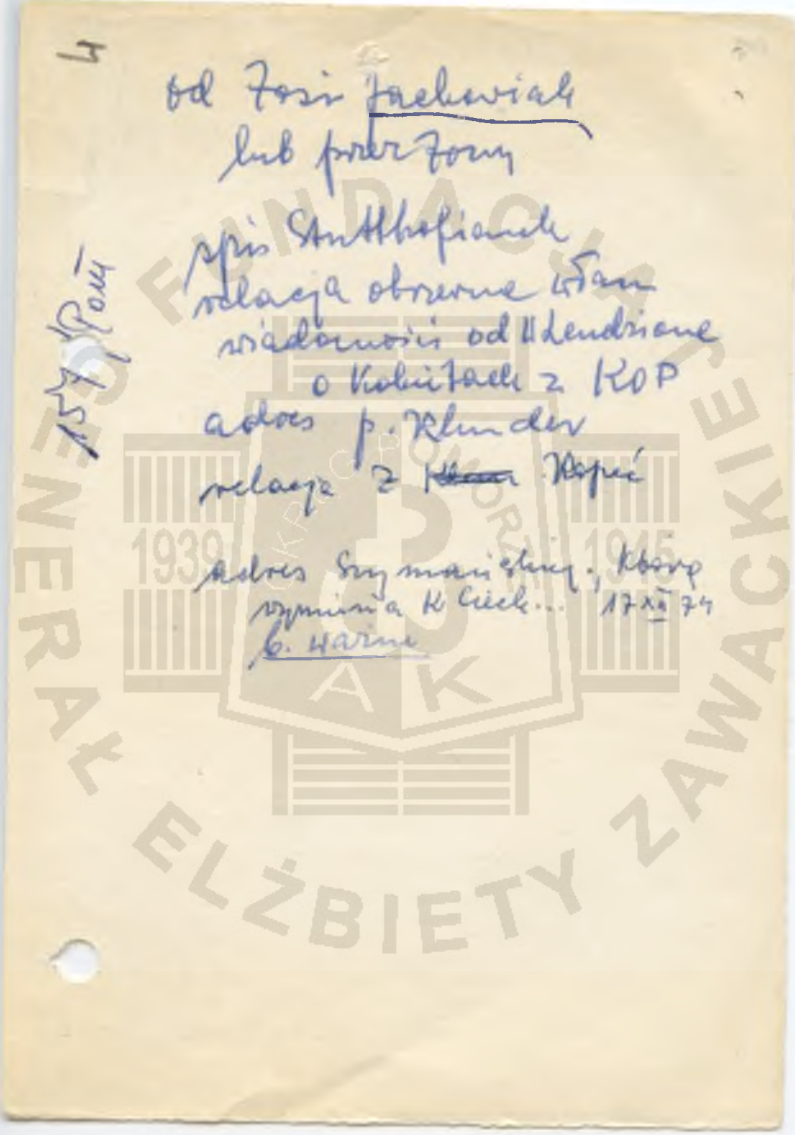 4
od Zosi Jachowiak
lub przez Zosię
157/Pom
spis Stutthofianek
relacja obszerna włam
wiadomości od U Lendzione
o kobietach z KOP
adres p. Klunder
relacja z Kopeć
adres Szymańskiej, którą
wymienia K Ciech... 17 XII 74
b. ważne
FUNDACJA
GENERAŁ ELŻBIETY ZAWACKIEJ
1939
1945
AK